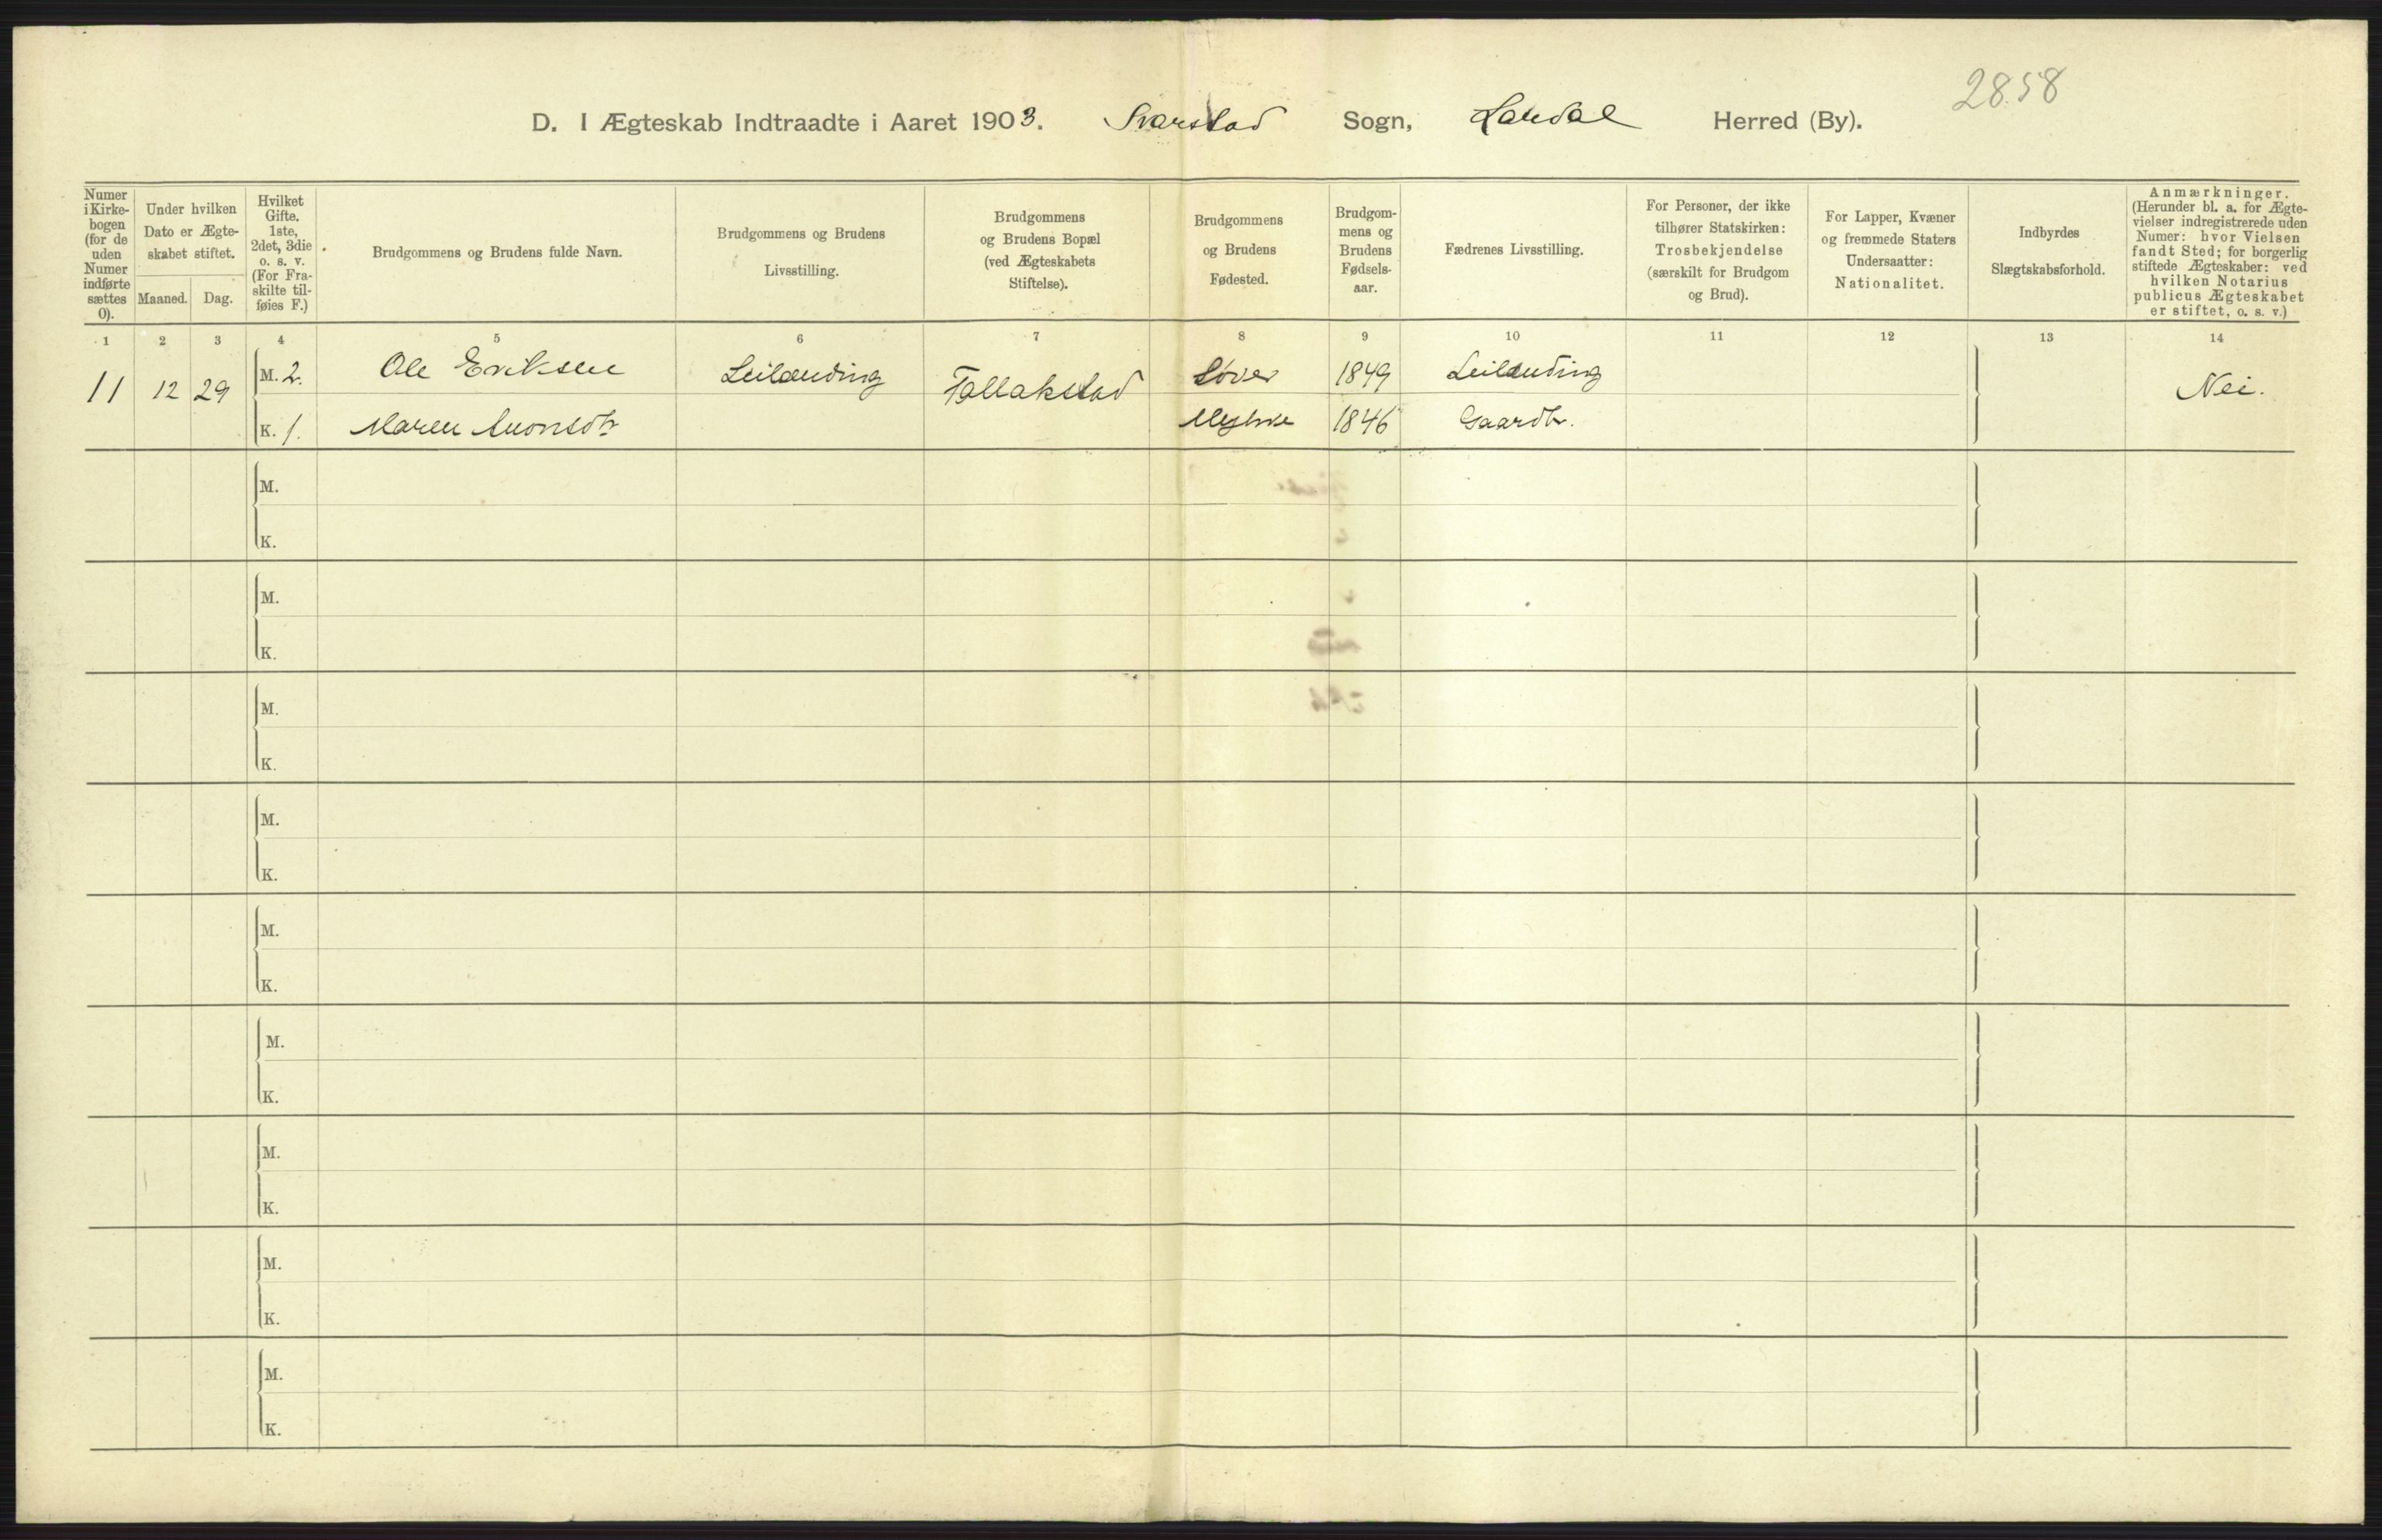 2858
D. I Ægteskab Indtraadte i Aaret 1903. Svarstad Sogn, Lardal Herred (By).
Numer i Kirke-bogen (for de uden Numer indførte sættes 0).
Under hvilken Dato er Ægte-skabet stiftet.
Maaned. Dag.
Hvilket Gifte. 1ste, 2det, 3die o. s. v. (For Fra-skilte til-føies F.)
Brudgommens og Brudens fulde Navn.
Brudgommens og Brudens Livsstilling.
Brudgommens og Brudens Bopæl (ved Ægteskabets Stiftelse).
Brudgommens og Brudens Fødested.
Brudgom-mens og Brudens Fødsels-aar.
Fædrenes Livsstilling.
For Personer, der ikke tilhører Statskirken: Trosbekjendelse (særskilt for Brudgom og Brud).
For Lapper, Kvæner og fremmede Staters Undersaatter: Nationalitet.
Indbyrdes Slægtskabsforhold.
Anmærkninger. (Herunder bl. a. for Ægte-vielser indregistrerede uden Numer: hvor Vielsen fandt Sted; for borgerlig stiftede Ægteskaber: ved hvilken Notarius publicus Ægteskabet er stiftet, o. s. v.)
1 2 3 4 5 6 7 8 9 10 11 12 13 14
11 12 29 M. 2. Ole Eriksen Leilænding Tallakstad 1849 Leilænding Nei.
K. 1. Maren 1846 Gaardbr.
M.
K.
M.
K.
M.
K.
M.
K.
M.
K.
M.
K.
M.
K.
M.
K.
M.
K.